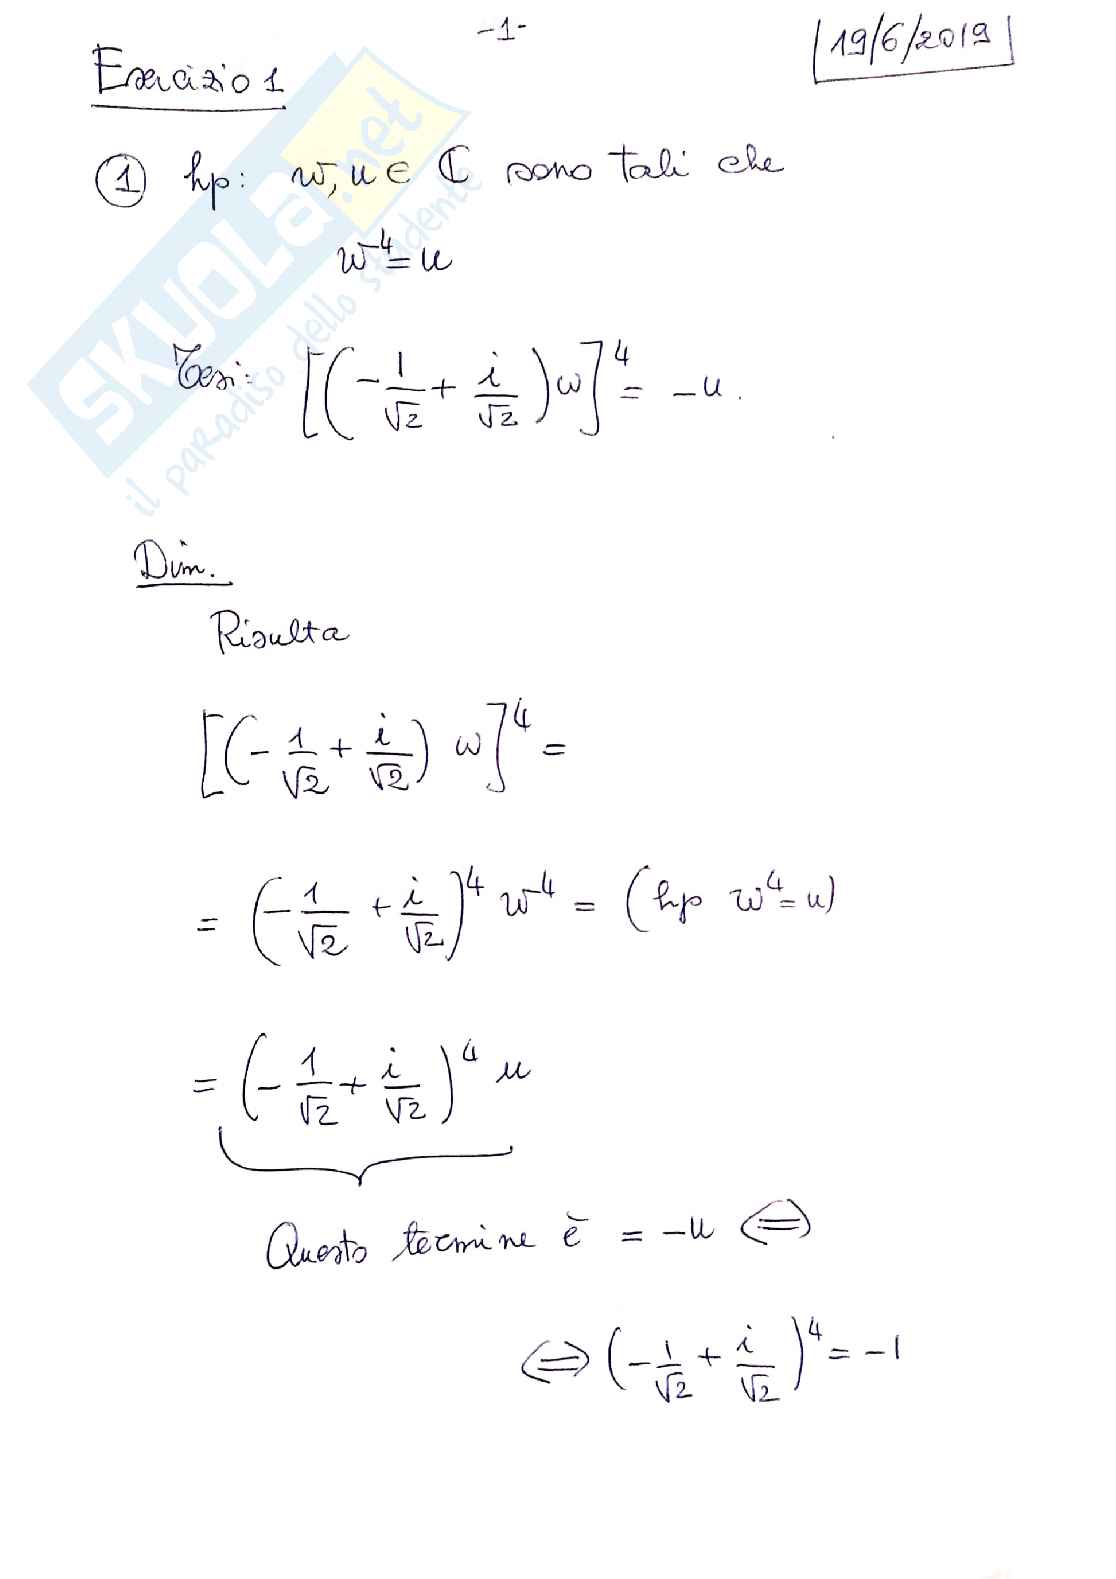 -1-
19/6/2019
Esercizio 1
① hp: w, u ∈ ℂ sono tali che
w⁴ = u
Tesi: [(-1/√2 + i/√2) w]⁴ = -u.
Dim.
Risulta
[(-1/√2 + i/√2) w]⁴ =
= (-1/√2 + i/√2)⁴ w⁴ = (hp w⁴ = u)
= (-1/√2 + i/√2)⁴ u
Questo termine è = -u ⇔
⇔ (-1/√2 + i/√2)⁴ = -1
SKUOLA.net
il paradiso dello studente